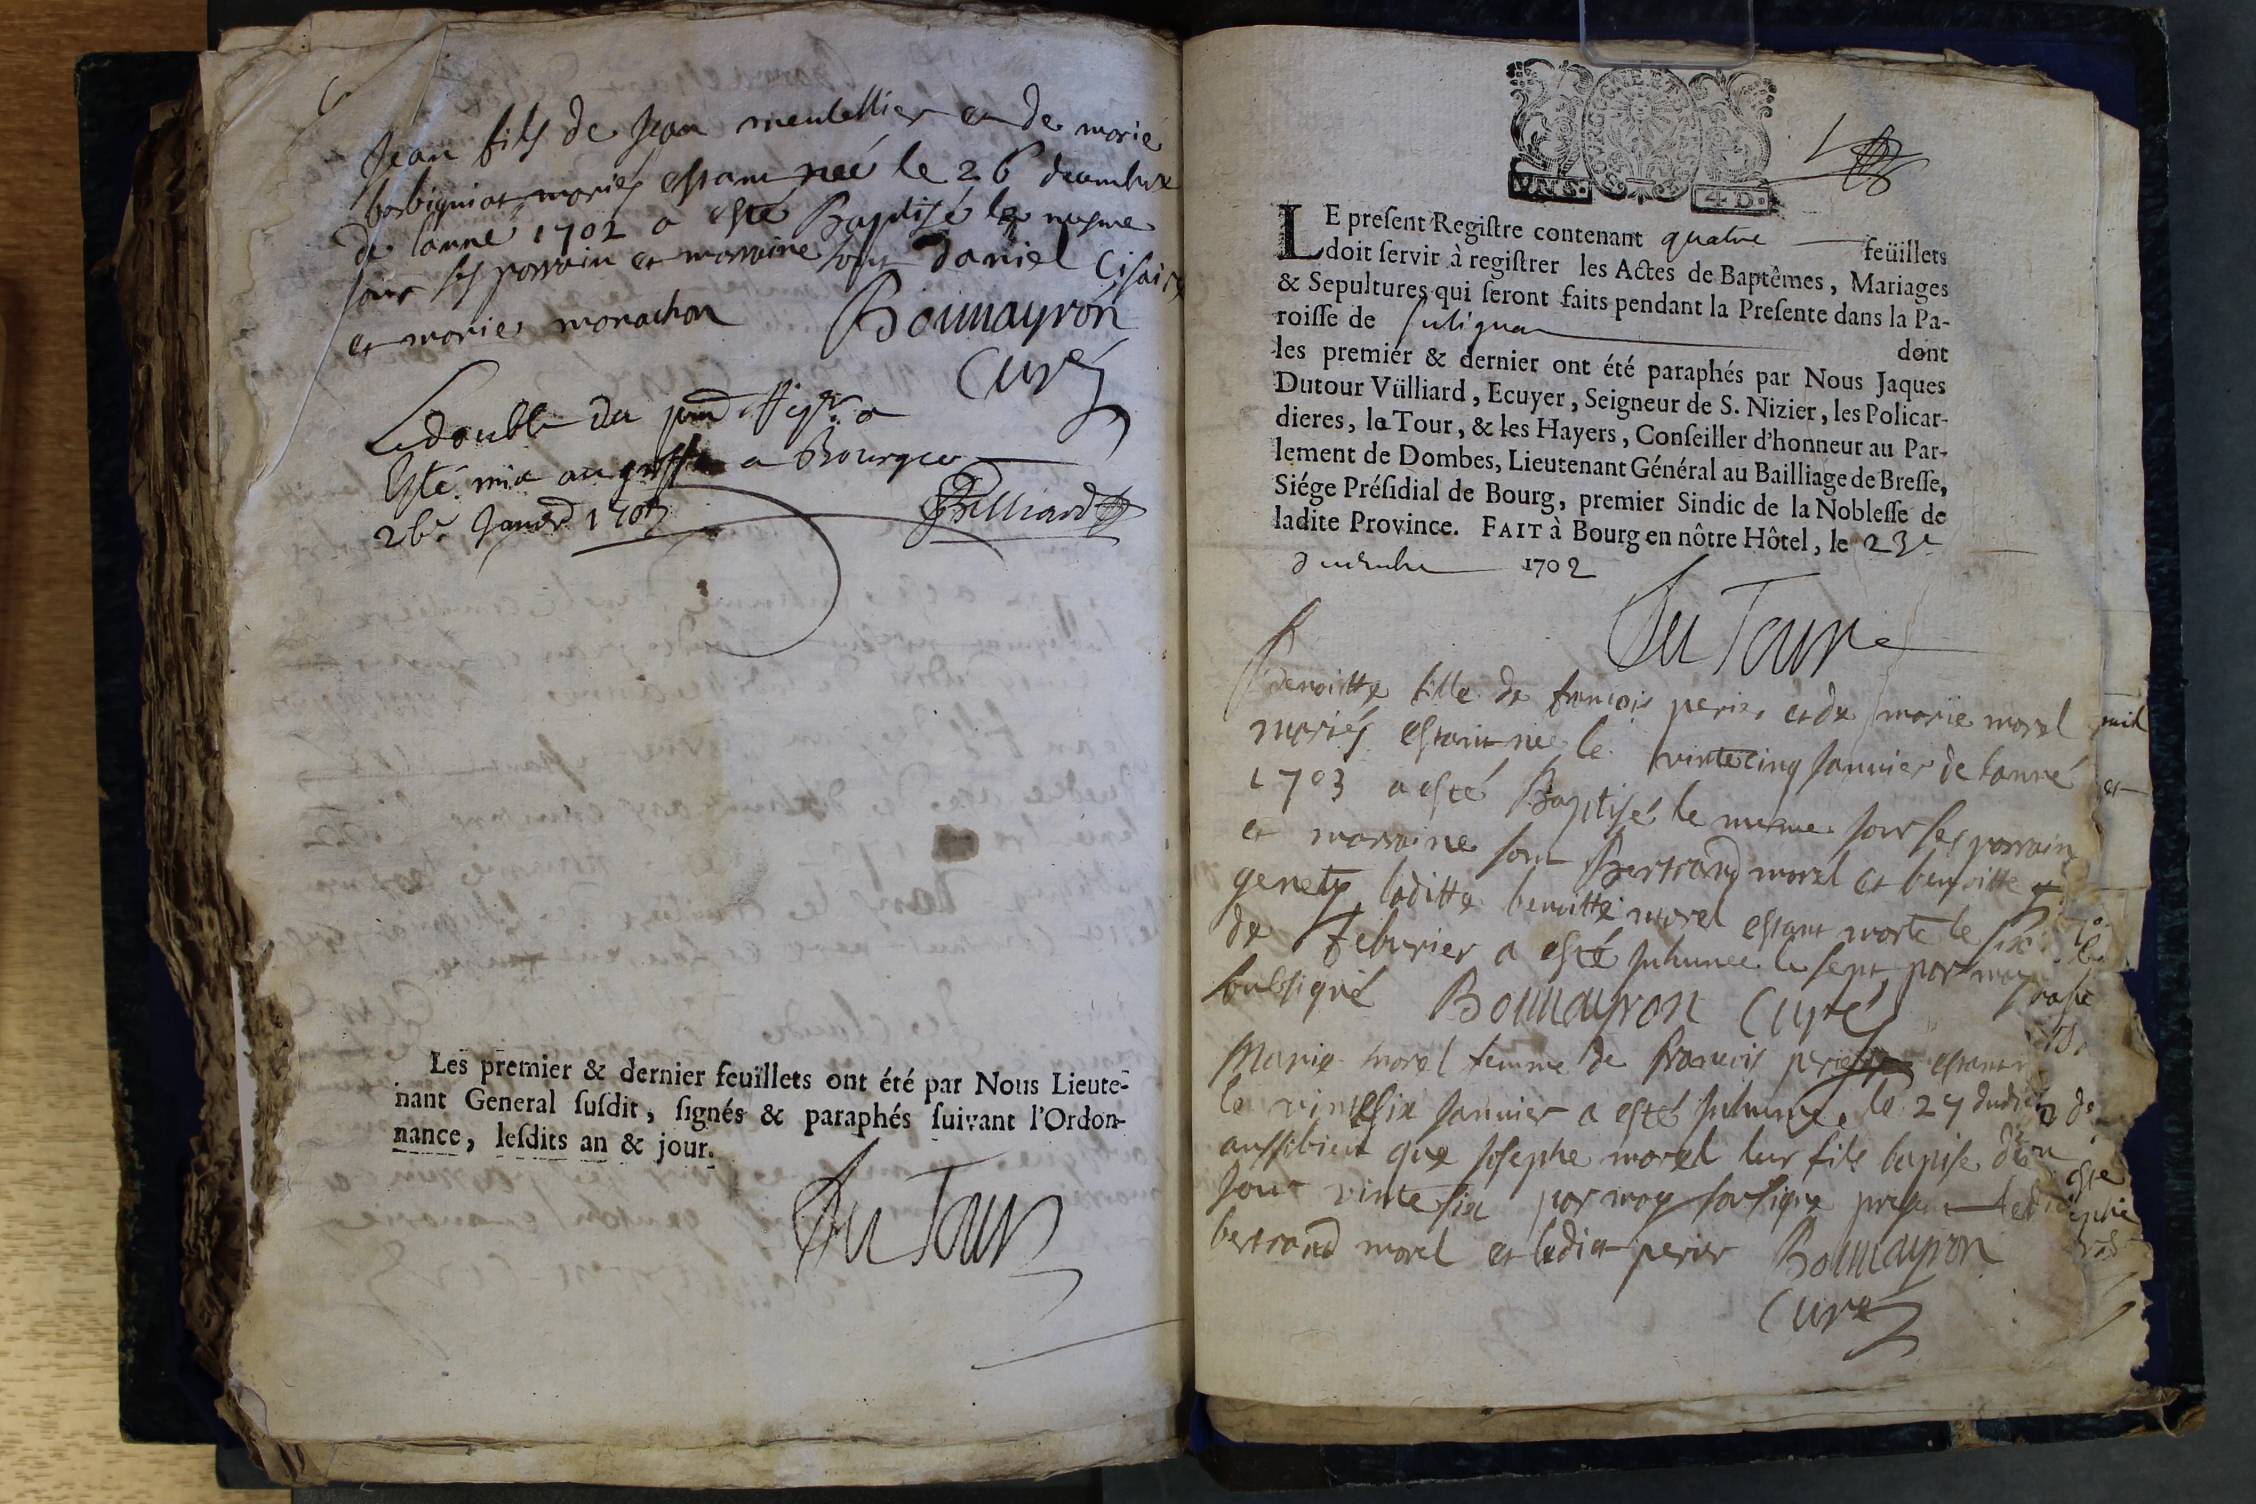 Jean fils de Jean meutellier et de marie
barbigniat mariés estant née le 26 decembre
de lanné 1702 a esté Baptisé le mesme
jour ses parrain et marraine sont daniel
et marie monachon Bounayron
Curé
Le double du pnt Regre a
Esté mis au greffe a Bourg ce
26e Janvr 1703 Billiard
Les premier & dernier feuïllets ont été par Nous Lieute-
nant General ſuſdit, ſignés & paraphés ſuivant l'Ordon-
nance, leſdits an & jour.
Du Tour
VN S. 4 D.
LE preſent Regiſtre contenant quatre feüillets
doit ſervir à regiſtrer les Actes de Baptêmes, Mariages
& Sepultures qui ſeront faits pendant la Preſente dans la Pa-
roiſſe de Sulignat dont
les premier & dernier ont été paraphés par Nous Jaques
Dutour Vülliard, Ecuyer, Seigneur de S. Nizier, les Policar-
dieres, la Tour, & les Hayers, Conſeiller d'honneur au Par-
lement de Dombes, Lieutenant Général au Bailliage de Breſſe,
Siége Préſidial de Bourg, premier Sindic de la Nobleſſe de
ladite Province. FAIT à Bourg en nôtre Hôtel, le 23e
decembre 1702
Du Tour
benoitte fille de francois perier et de marie morel
mariés estant née le vintecinq Janvier de lanné
1703 a esté Baptisé le mesme jour ses parrain
et marraine sont Bertrand morel et benoitte
genety laditte benoitte morel estant morte le six
de feburier a esté inhumee le sept par moy
soubsigné Bounayron Curé
Marie morel femme de francois perier estant
le vintesix Janvier a esté inhumée le 27 dudit
aussibien que Josephe morel leur fils
jour vinte six par moy sousigné
bertrand morel et ledit perier Bounayron
Curé